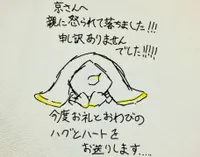 京さんへ
親に怒られて落ちました!!!
申し訳ありません
でした!!!!!
今度お礼とおわびの
ハグとハートを
お送りします....